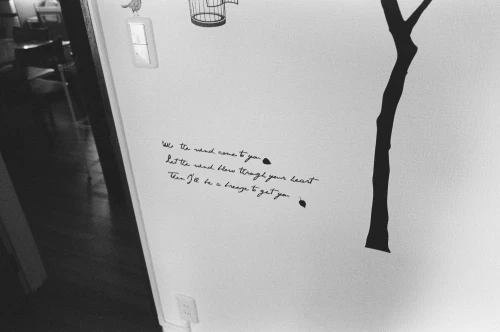 the wind come to you
Let the wind blow through your heart
Then I'll be a breeze to get you